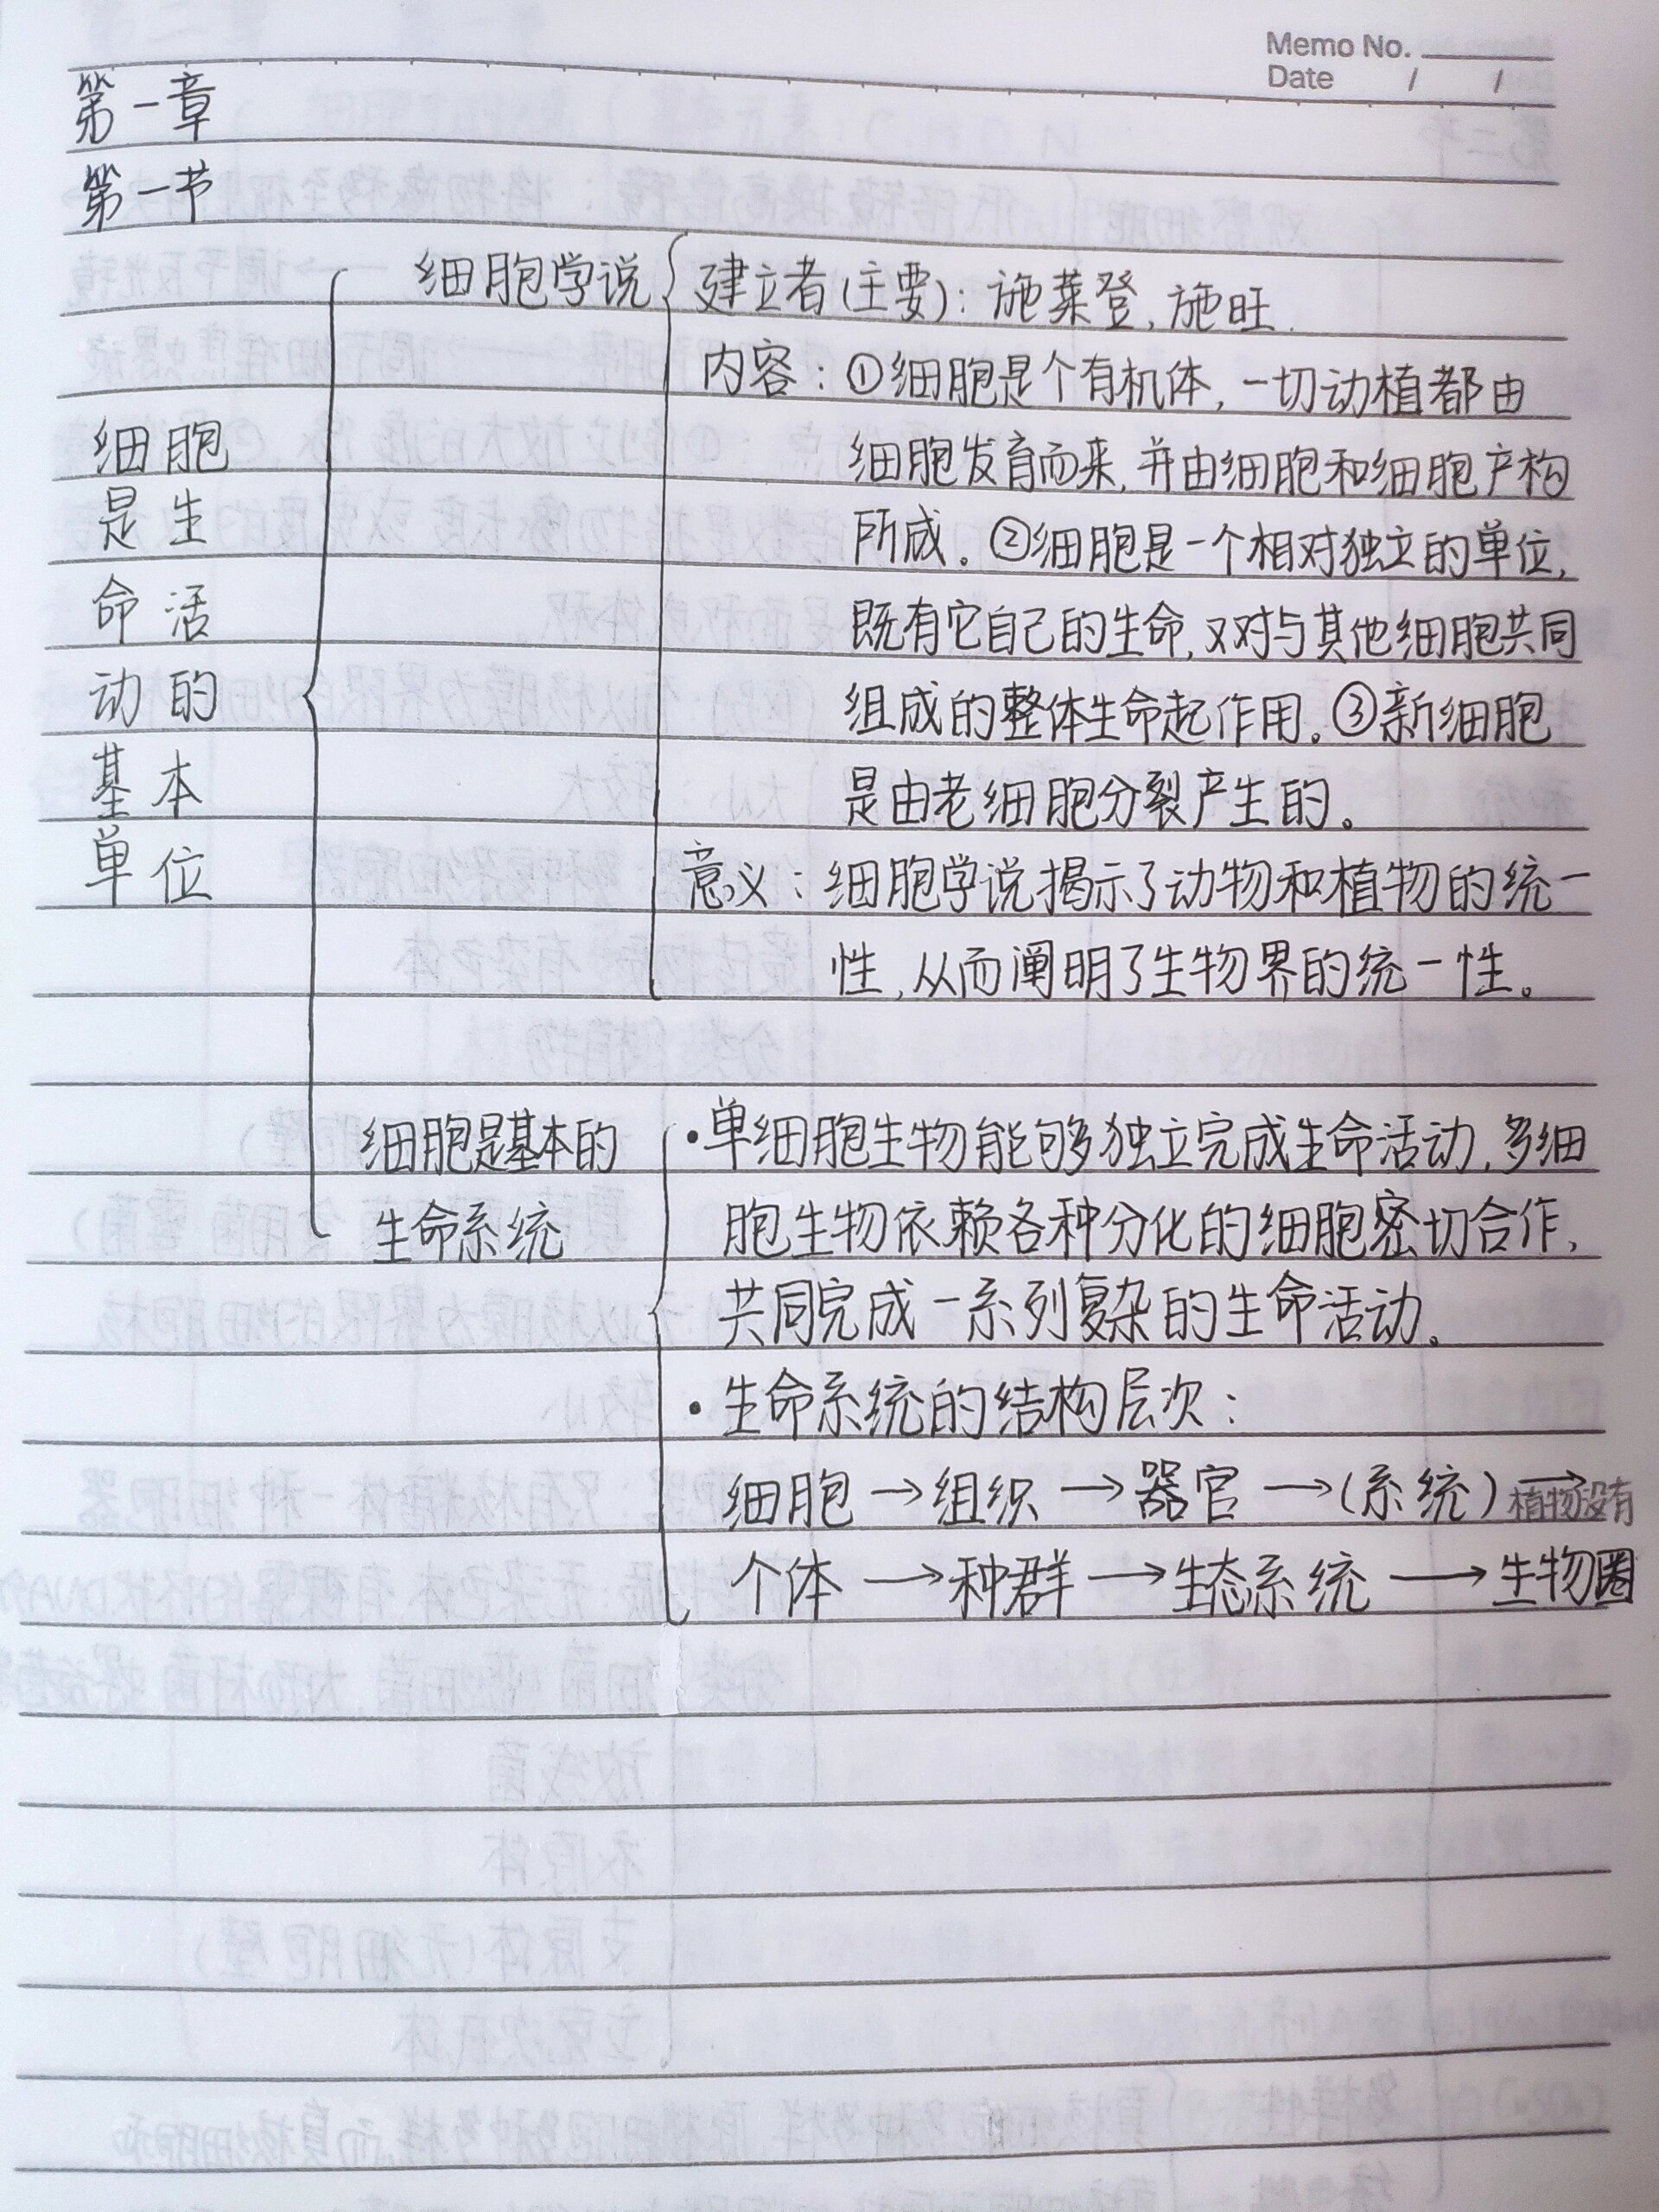 Memo No.
Date / /
第一章
第一节
细胞
是生
命活
动的
基本
单位
细胞学说
建立者(主要)：施莱登，施旺.
内容：①细胞是个有机体，一切动植都由
细胞发育而来，并由细胞和细胞产构
所成。②细胞是一个相对独立的单位，
既有它自己的生命，又对与其他细胞共同
组成的整体生命起作用。③新细胞
是由老细胞分裂产生的。
意义：细胞学说揭示了动物和植物的统一
性，从而阐明了生物界的统一性。
细胞是基本的
生命系统
·单细胞生物能够独立完成生命活动，多细
胞生物依赖各种分化的细胞密切合作，
共同完成一系列复杂的生命活动。
·生命系统的结构层次：
细胞→组织→器官→(系统)→植物没有
个体→种群→生态系统→生物圈